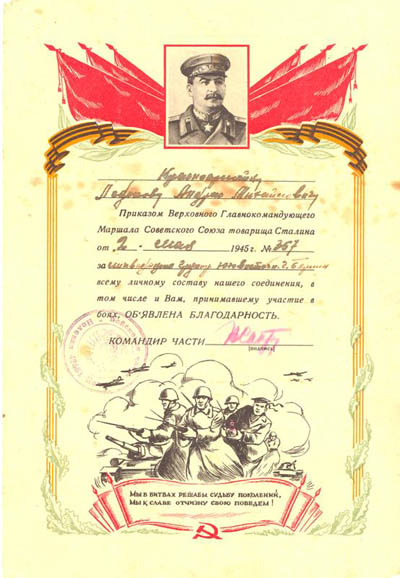 Красноармейцу
Андрею Михайловичу
Приказом Верховного Главнокомандующего
Маршала Советского Союза товарища Сталина
от 2 мая 1945 г. № 357
за ликвидацию группы г. Берлин
всему личному составу нашего соединения, в
том числе и Вам, принимавшему участие в
боях, ОБ'ЯВЛЕНА БЛАГОДАРНОСТЬ.
КОМАНДИР ЧАСТИ
(подпись)
МЫ В БИТВАХ РЕШАЕМ СУДЬБУ ПОКОЛЕНИЙ,
МЫ К СЛАВЕ ОТЧИЗНУ СВОЮ ПОВЕДЕМ!